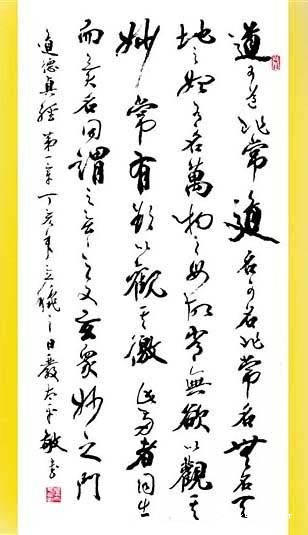 道可道非常道名可名非常名無名天
地之始有名萬物之母故常無欲以觀其
妙常有欲以觀其徼此兩者同出
而異名同謂之玄玄之又玄眾妙之門
道德真經第一章丁亥年立秋之日